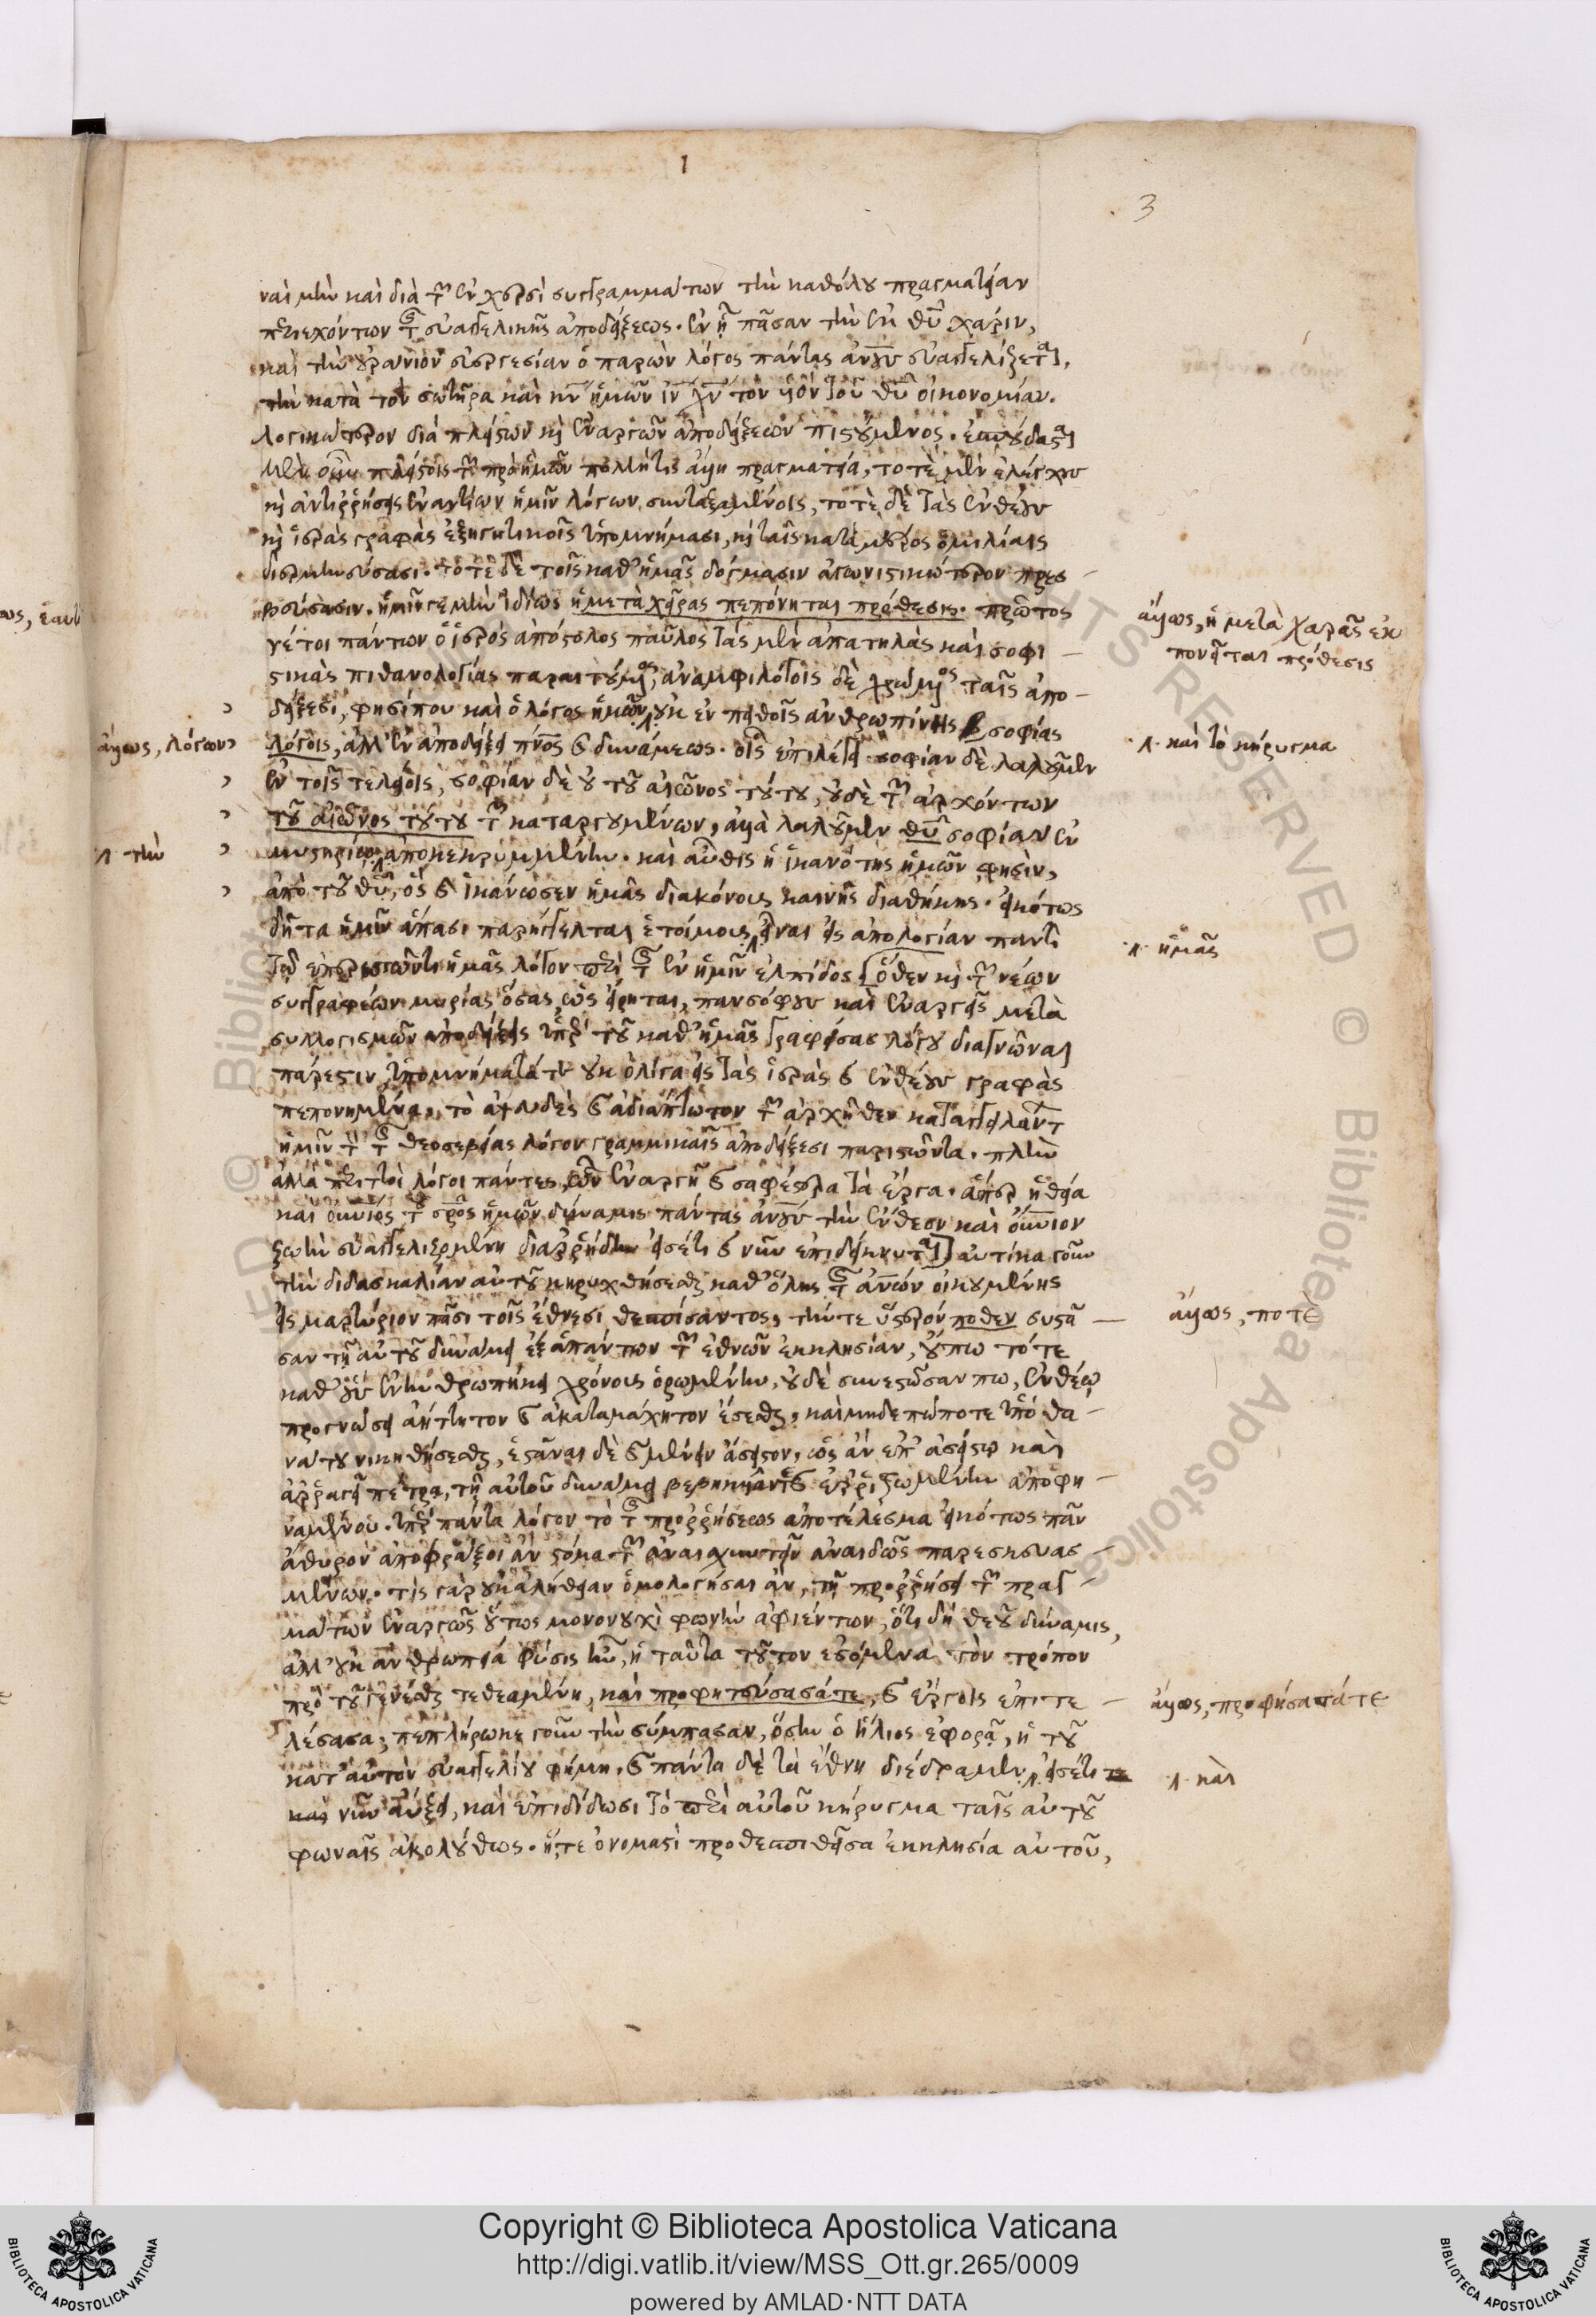 1
3
ναὶ μὴν καὶ διὰ τῶν ἐν χερσὶ συγγραμμάτων τὴν καθόλου πραγματείαν
περιεχόντων τῆς εὐαγγελικῆς ἀποδείξεως. ἐν ᾗ πᾶσαν τὴν ἐκ θυ χάριν,
καὶ τὴν οὐράνιον εὐεργεσίαν ὁ παρὼν λόγος πάντας ἀνους εὐαγγελίζεται,
τὴν κατὰ τὸν σωτῆρα καὶ κν ἡμῶν ιν χν τὸν υἱὸν τοῦ θυ οἰκονομίαν.
λογικώτερον διὰ πλειόνων καὶ ἐναργῶν ἀποδείξεων πιστούμενος. ἐσπούδασται
μὲν οὖν πλείστοις τῶν πρὸ ἡμῶν πολλή τις ἄλλη πραγματεία, τοτὲ μὲν ἐλέγχους
καὶ ἀντιῤῥήσεις ἐναντίων ἡμῖν λόγων συνταξαμένοις, τοτὲ δὲ τὰς ἐνθέους
καὶ ἱερὰς γραφὰς ἐξηγητικοῖς ὑπομνήμασι, καὶ ταῖς κατὰ μέρος ὁμιλίαις
διερμηνεύσασι. τοτὲ δὲ τοῖς καθ' ἡμᾶς δόγμασιν ἀγωνιστικώτερον πρεσ-
βεύσασιν. ἡμῖν γε μὴν ἰδίως ἡ μετὰ χεῖρας πεπόνηται πρόθεσις. πρῶτος
γέ τοι πάντων ὁ ἱερὸς ἀπόστολος παῦλος τὰς μὲν ἀπατηλὰς καὶ σοφι-
στικὰς πιθανολογίας παραιτούμενος, ἀναμφιλόγοις δὲ χρώμενος ταῖς ἀπο-
δείξεσι, φησί που καὶ ὁ λόγος ἡμῶν οὐκ ἐν πειθοῖς ἀνθρωπίνης σοφίας
λόγοις, ἀλλ' ἐν ἀποδείξει πνος καὶ δυνάμεως. οἷς ἐπιλέγει σοφίαν δὲ λαλοῦμεν
ἐν τοῖς τελείοις, σοφίαν δὲ οὐ τοῦ αἰῶνος τούτου, οὐδὲ τῶν ἀρχόντων
τοῦ αἰῶνος τούτου τῶν καταργουμένων, ἀλλὰ λαλοῦμεν θυ σοφίαν ἐν
μυστηρίῳ ἀποκεκρυμμένην. καὶ αὖθις ἡ ἱκανότης ἡμῶν φησὶν,
ἀπὸ τοῦ θυ, ὃς καὶ ἱκάνωσεν ἡμᾶς διακόνους καινῆς διαθήκης. εἰκότως
δῆτα ἡμῖν ἅπασι παρήγγελται ἑτοίμους εἶναι εἰς ἀπολογίαν παντὶ
τῷ ἐπερωτῶντι ἡμᾶς λόγον περὶ τῆς ἐν ἡμῖν ἐλπίδος [ὅθεν καὶ τῶν νέων
συγγραφέων μυρίας ὅσας, ὡς εἴρηται, πανσόφους καὶ ἐναργεῖς μετὰ
συλλογισμῶν ἀποδείξεις ὑπὲρ τοῦ καθ' ἡμᾶς γραφείσας λόγου διαγνῶναι
πάρεστιν, ὑπομνήματά τε οὐκ ὀλίγα εἰς τὰς ἱερὰς καὶ ἐνθέους γραφὰς
πεπονημένα, τὸ ἀψευδὲς καὶ ἀδιάπτωτον τῶν ἀρχῆθεν καταγγειλάντων
ἡμῖν τὸν τῆς θεοσεβείας λόγον γραμμικαῖς ἀποδείξεσι παριστῶντα. πλὴν
ἀλλὰ περιττοὶ λόγοι πάντες, ὧν ἐναργῆ καὶ σαφέστερα τὰ ἔργα. ἅπερ ἡ θεία
καὶ οὐνιος τοῦ σρος ἡμῶν δύναμις πάντας ἀνους τὴν ἔνθεον καὶ οὐνιον
ζωὴν εὐαγγελιζομένη διαῤῥήδην εἰσέτι καὶ νῦν ἐπιδείκνυται] αὐτίκα γοῦν
τὴν διδασκαλίαν αὐτοῦ κηρυχθήσεσθαι καθ' ὅλης τῆς ἀνων οἰκουμένης
εἰς μαρτύριον πᾶσι τοῖς ἔθνεσι θεσπίσαντος, τήν τε ὕστερόν ποθεν συστᾶ-
σαν τῇ αὐτοῦ δυνάμει ἐξ ἁπάντων τῶν ἐθνῶν ἐκκλησίαν, οὔπω τότε
καθ' οὓς ἐνηνθρωπήκει χρόνους ὁρωμένην, οὐδὲ συνεστῶσαν πω, ἐνθέῳ
προγνώσει ἀήττητον καὶ ἀκαταμάχητον ἔσεσθαι, καὶ μηδεπώποτε ὑπὸ θα-
νάτου νικηθήσεσθαι, ἑστάναι δὲ καὶ μένειν ἄσειστον, ὡς ἂν ἐπ' ἀσείστῳ καὶ
ἀῤῥαγεῖ πέτρᾳ, τῇ αὐτοῦ δυνάμει βεβηκυῖαν καὶ ἐῤῥιζωμένην ἀποφη-
ναμένου. ὑπὲρ πάντα λόγον τὸ τῆς προῤῥήσεως ἀποτέλεσμα εἰκότως πᾶν
ἄθυρον ἀποφράξοι ἂν στόμα τῶν ἀναισχυντεῖν ἀναιδῶς παρεσκευασ-
μένων. τίς γὰρ οὐκ ἀλήθειαν ὁμολογήσαι ἂν, τῇ προῤῥήσει τῶν πραγ-
μάτων ἐναργῶς οὕτως μονονουχὶ φωνὴν ἀφιέντων, ὅτι δὴ θεοῦ δύναμις,
ἀλλ' οὐκ ἀνθρωπεία φύσις ἦν, ἡ ταῦτα τοῦτον ἐσόμενα τὸν τρόπον
πρὸ τοῦ γενέσθαι τεθεαμένη, καὶ προφητεύσασά τε, καὶ ἔργοις ἐπιτε-
λέσασα; πεπλήρωκε γοῦν τὴν σύμπασαν, ὅσην ὁ ἥλιος ἐφορᾷ, ἡ τοῦ
κατ' αὐτὸν εὐαγγελίου φήμη, καὶ πάντα δὲ τὰ ἔθνη διέδραμεν, εἰσέτι τε
καὶ νῦν αὔξει, καὶ ἐπιδίδωσι τὸ περὶ αὐτοῦ κήρυγμα ταῖς αὐτοῦ
φωναῖς ἀκολούθως. ἥ τε ὀνομαστὶ προθεσπισθεῖσα ἐκκλησία αὐτοῦ,
ἄλλως, ἡ μετὰ χαρᾶς ἐκ
πονεῖται πρόθεσις
ἄλλως, λόγων
λ. καὶ τὸ κήρυγμα
λ. τὴν
λ. ἡμᾶς
ἄλλως, ποτέ
ἄλλως, προφήσασά τε
λ. καὶ
Copyright © Biblioteca Apostolica Vaticana
http://digi.vatlib.it/view/MSS_Ott.gr.265/0009
powered by AMLAD·NTT DATA
BIBLIOTECA APOSTOLICA VATICANA
BIBLIOTECA APOSTOLICA VATICANA